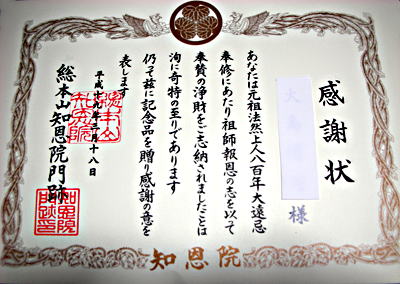 感謝状
様
あなたは元祖法然上人八百年大遠忌
奉修にあたり祖師報恩の志を以て
奉賛の浄財をご志納されましたことは
洵に奇特の至りであります
仍て茲に記念品を贈り感謝の意を
表します
平成十九年三月十八日
総本山知恩院門跡
知恩院